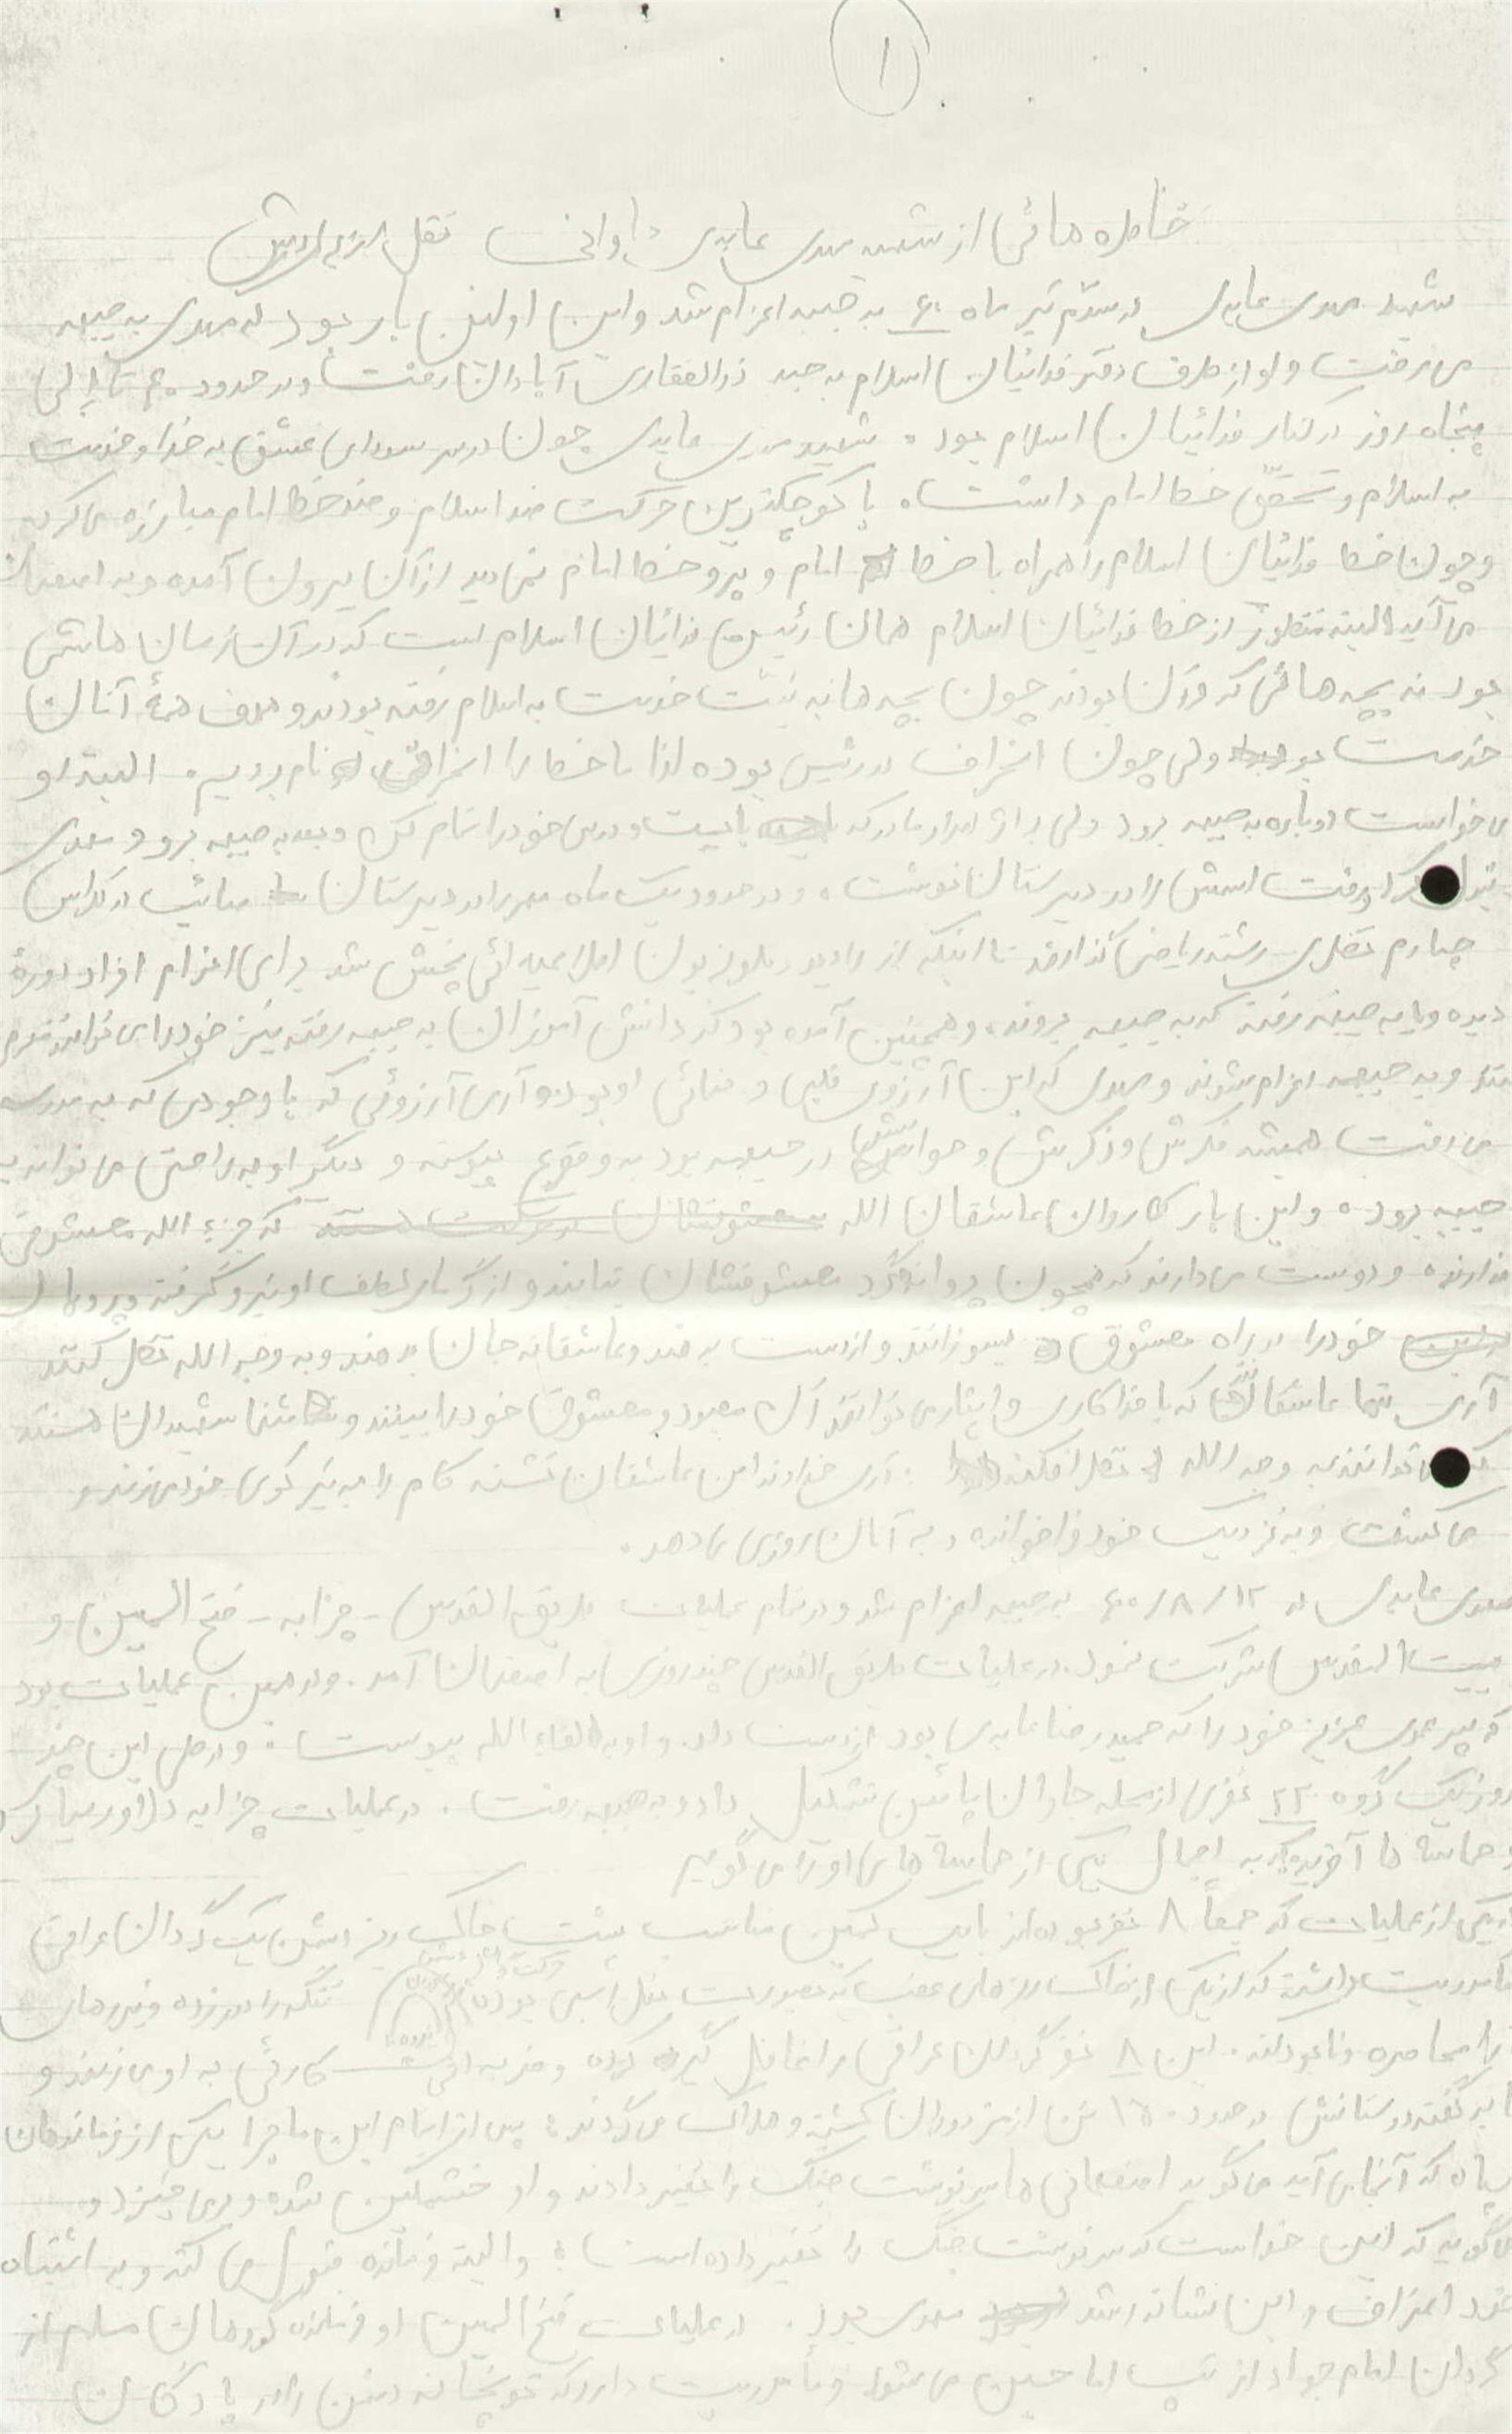 ۱
خاطره هائی از شهید مهدی عابدی نقل از
شهید مهدی عابدی در ستم تیر ماه ۶۰ به جبهه اعزام شد و این اولین بار بود که مهدی به جبهه
می رفت و او از طرف دفتر فدائیان اسلام به جبهه ذوالفقاری آبادان رفت و در حدود ۴۰ تا الی
پنجاه روز در کنار فدائیان اسلام بود. شهید مهدی عابدی چون در سر سودای عشق به خدا و خدمت
به اسلام و تحقق خط امام داشت. با کوچکترین حرکت ضد اسلام و ضد خط امام مبارزه می کرد
و چون خط فدائیان اسلام را همراه با خط امام و پیرو خط امام نمی دید از آن بیرون آمده و به اصفهان
می آید البته منظور از خط فدائیان اسلام همان رئیس فدائیان اسلام است که در آن زمان هاشمی
بود نه بچه هائی که در آن بودند چون بچه ها به نیت خدمت به اسلام رفته بودند و هدف همۀ آنان
خدمت بود ولی چون انحراف در رئیس بوده لذا ما خط را انحرافی نام بردیم. البته او
می خواست دوباره به جبهه برود ولی به اصرار مادر که بایست درس خود را تمام کند و بعد به جبهه برود مهدی
رفت اسمش را در دبیرستان نوشت. و در حدود یک ماه مهر را در دبیرستان صائب در کلاس
چهارم نظری رشته ریاضی گذراند تا اینکه از رادیو تلویزیون اطلاعیه ائی پخش شد برای اعزام افراد دورۀ
دیده و یا به جبهه رفته که به جبهه بروند. و همچنین آمده بود که دانش آموزان به جبهه رفته نیز خود را می توانند معرفی
کنند و به جبهه اعزام شوند و مهدی که این آرزوی قلبی و نهائی او بود. آری آرزوئی که با وجودی که به مدرسه
می رفت همیشه فکرش و ذکرش و حواسش در جبهه بود به وقوع پیوست و دیگر او به راحتی می تواند به
جبهه برود. و این بار کاروان عاشقان الله که جزء الله معشوقی
ندارند. و دوست می دارند که همچون پروانه گرد معشوقشان بتابند و از گرمای لطف او نیرو گرفته و پر و بال
خود را در راه معشوق بسوزانند و از دست بدهند و عاشقانه جان بدهند و به وجه الله نظر کنند
آری تنها عاشقان که با فداکاری و ایثار می توانند آن معبود و معشوق خود را ببینند و تنها شهیدان هستند
که می توانند به وجه الله نظر افکنند. آری خداوند این عاشقان تشنه کام را به تیر کوی خود می زند و
می کشد و به نزدیک خود فرا خوانده و به آنان روزی می دهد.
مهدی عابدی در ۶۰/۸/۱۲ به جبهه اعزام شد و در تمام عملیات طریق القدس - چزابه - فتح المبین و
بیت المقدس شرکت نمود. در عملیات طریق القدس چند روزی به اصفهان آمد. و در همین عملیات بود
که پسر عموی عزیز خود را که حمید رضا عابدی بود از دست داد. و او به لقاء الله پیوست. و در طی این چند
روز یک گروه ۲۲ نفری از محله جاوان پائین تشکیل داد و به جبهه رفت. در عملیات چزابه دلاوریها کرد
و حماسه ها آفرید که به اجمال یکی از حماسه های او را می گوئیم
در یکی از عملیات که جمعاً ۸ نفر بوده اند با یک کمین مناسب پشت خاک ریز دشمن یک گردان عراقی
ماموریت داشته که از یکی از خاک ریزهای عقب که بصورت نعل اسبی بوده تنگه را دور زده و نیروهای
ما را محاصره و نابود کند. این ۸ نفر گردان عراقی را غافل گیر کرده و ضربه ائی کاری به او می زنند و
بنا به گفته دوستانش در حدود ۱۵۰ تن از مزدوران کشته و هلاک می گردند. پس از اتمام این ماجرا یکی از فرماندهان
سپاه که آنجا می آید می گوید اصفهانی ها سرنوشت جنگ را تغییر دادند و او خشمگین شده و بر می خیزد و
می گوید که این خداست که سرنوشت جنگ را تغییر داده است. و البته فرمانده قبول می کند و به اشتباه
خود اعتراف و این نشانه رشد مهدی بود. در عملیات فتح المبین او فرمانده گروهان مسلم از
گردان امام جواد از تیپ امام حسین می شود و ماموریت دارد که توپخانه دشمن را در پادگان